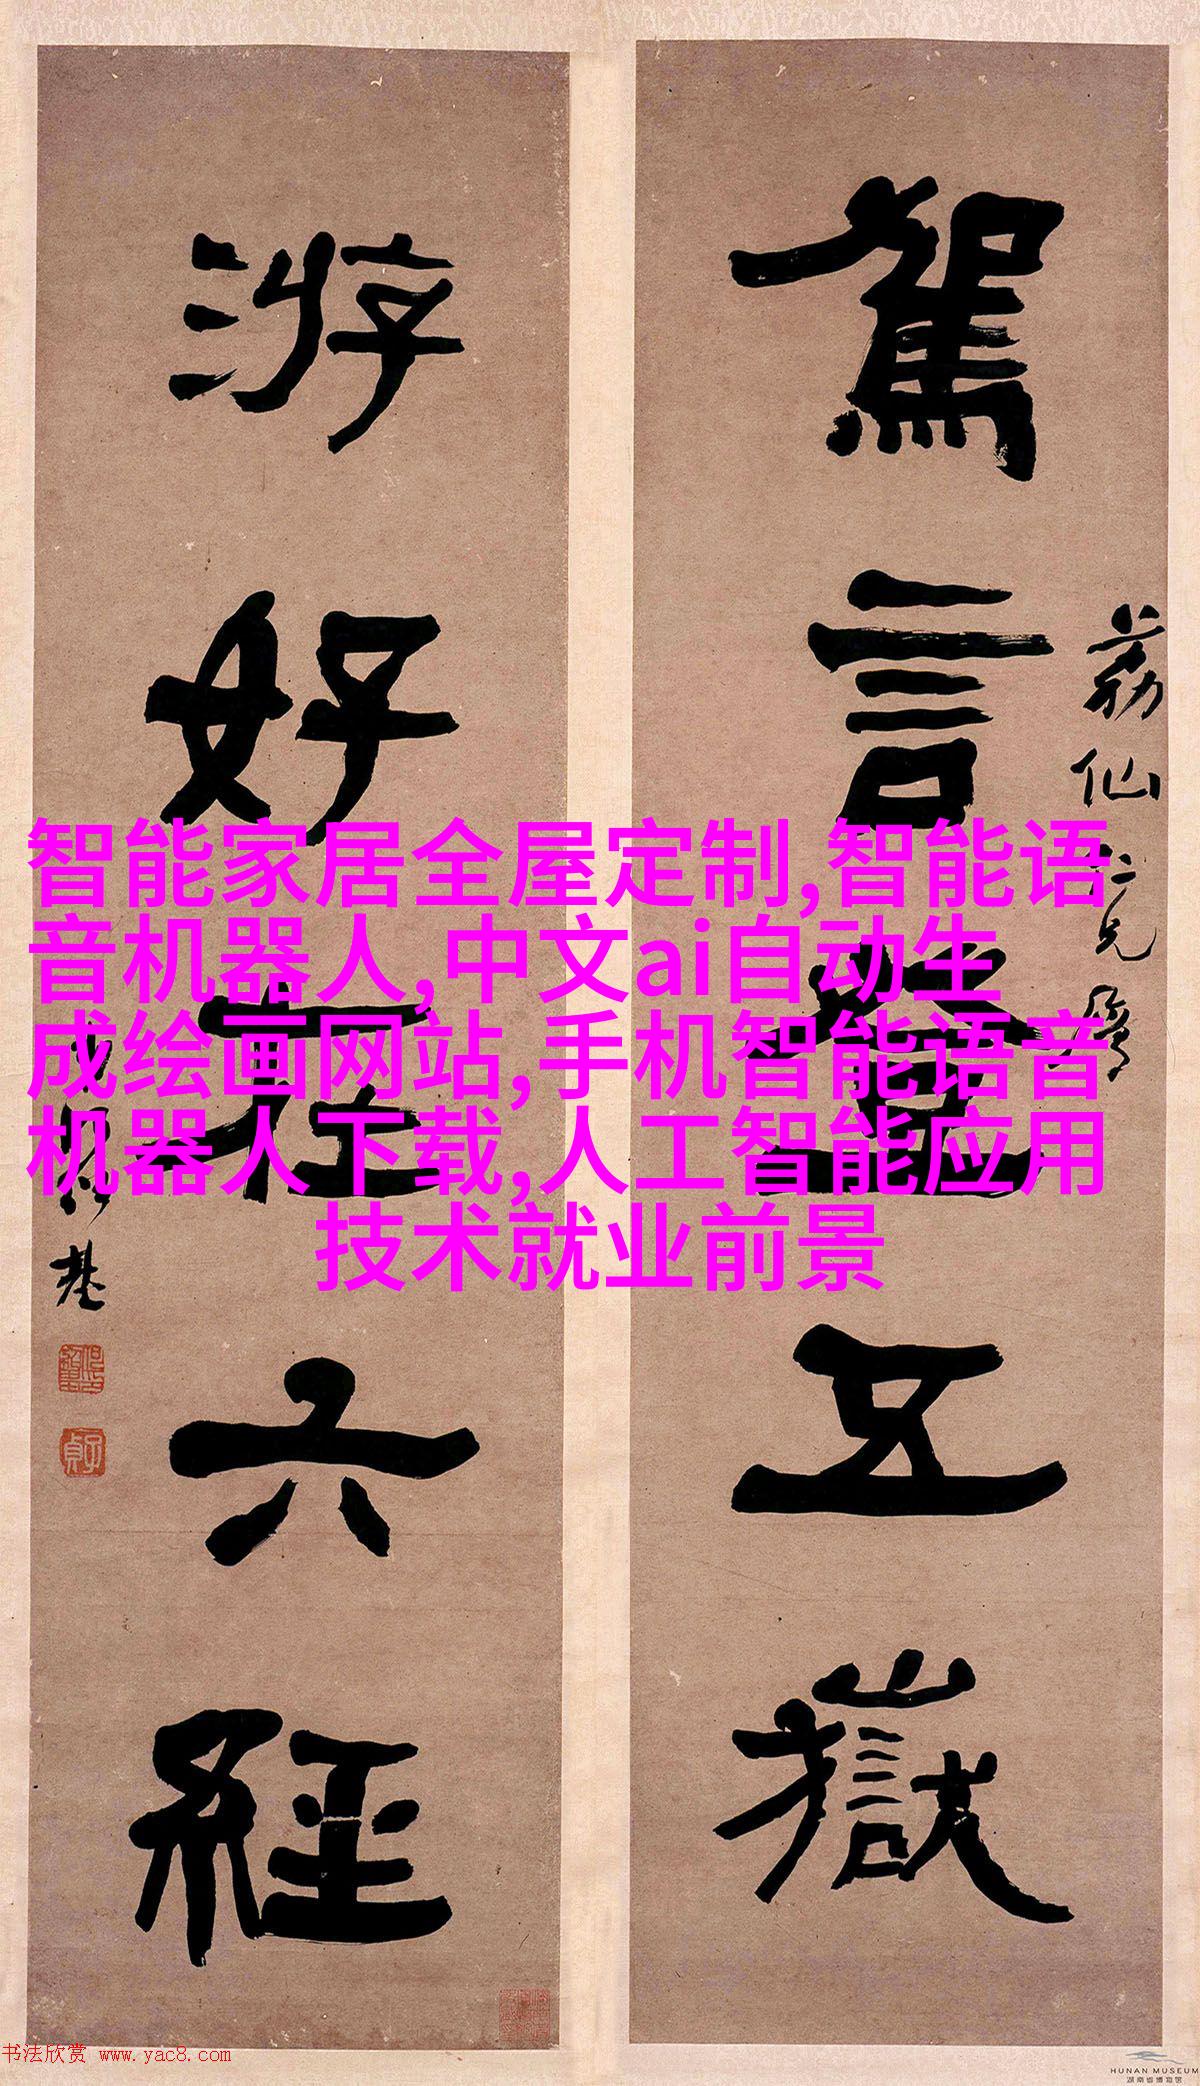 駕言登五嶽
荔仙仁兄屬
游好在六經
何紹基
子貞
智能家居全屋定制,智能语
音机器人,中文ai自动生
成绘画网站,手机智能语音
机器人下载,人工智能应用
技术就业前景
书法欣赏 www.yac8.com
HUNAN MUSEUM
湖南省博物馆